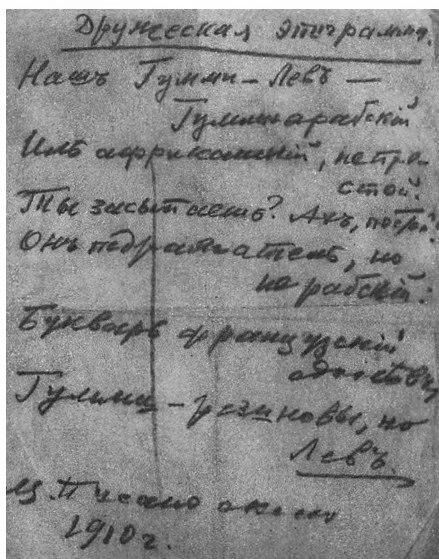 Дружеская эпиграмма.
Нашъ Гумми-Левъ —
Гуммиарабскій
Иль африканскій, не про-
стой.
Ты засыпаешь? Ахъ, постой!
Онъ подражатель, но
не рабскій:
Букварь французскій
Гумми-резиновый, но
Левъ.
Писано около
1910 г.